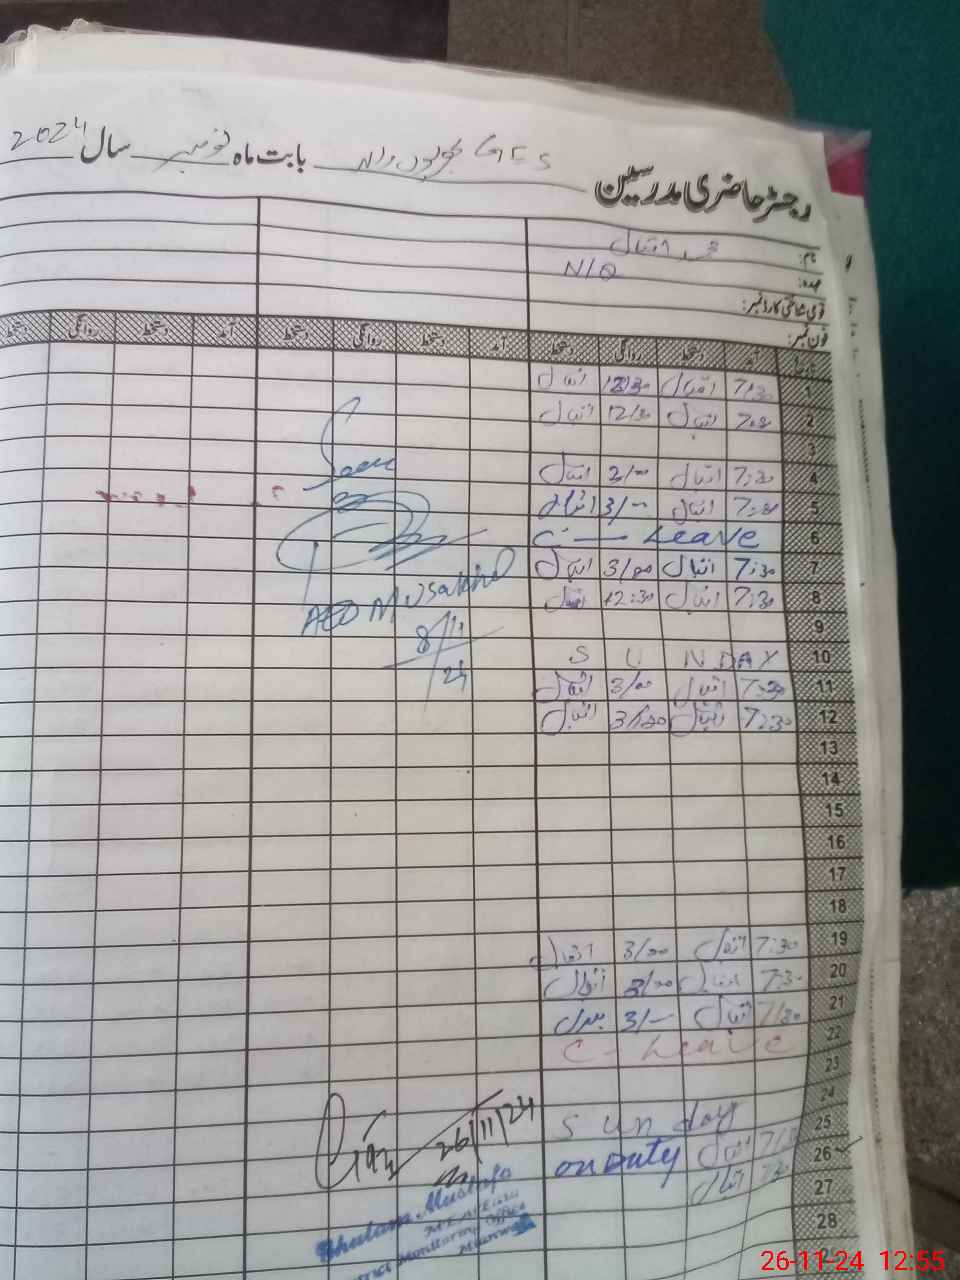 رجسٹر حاضری مدرسین GES بابت ماہ نومبر سال 2024
نام: محمد اقبال
عہدہ: N/Q
قومی شناختی کارڈ نمبر:
فون نمبر:
تاریخ آمد دستخط روانگی دستخط آمد دستخط روانگی دستخط آمد دستخط روانگی دستخط
1 7:30 اقبال 12:30 اقبال
2 اقبال 12/30 اقبال
3
4 7:30 اقبال اقبال
5 اقبال 3/— اقبال
6 C — Leave
7 7:30 اقبال 3/00 اقبال
8 7:30 اقبال 12:30 اقبال
9
10 SUNDAY
11 7:30 اقبال 3/00 اقبال
12 7:30 اقبال 3/00 اقبال
13
14
15
16
17
18
19 7:30 اقبال 3/00 اقبال
20 7:30 اقبال 3/00 اقبال
21 7/30 اقبال 3/—
22 C - Leave
23
24
25 Sunday
26 اقبال on Duty
27 7:30 اقبال
28
AEO Musakhel
8/11/24
26/11/24
Ghulam Mustafa
Monitoring Officer
26-11-24 12:55